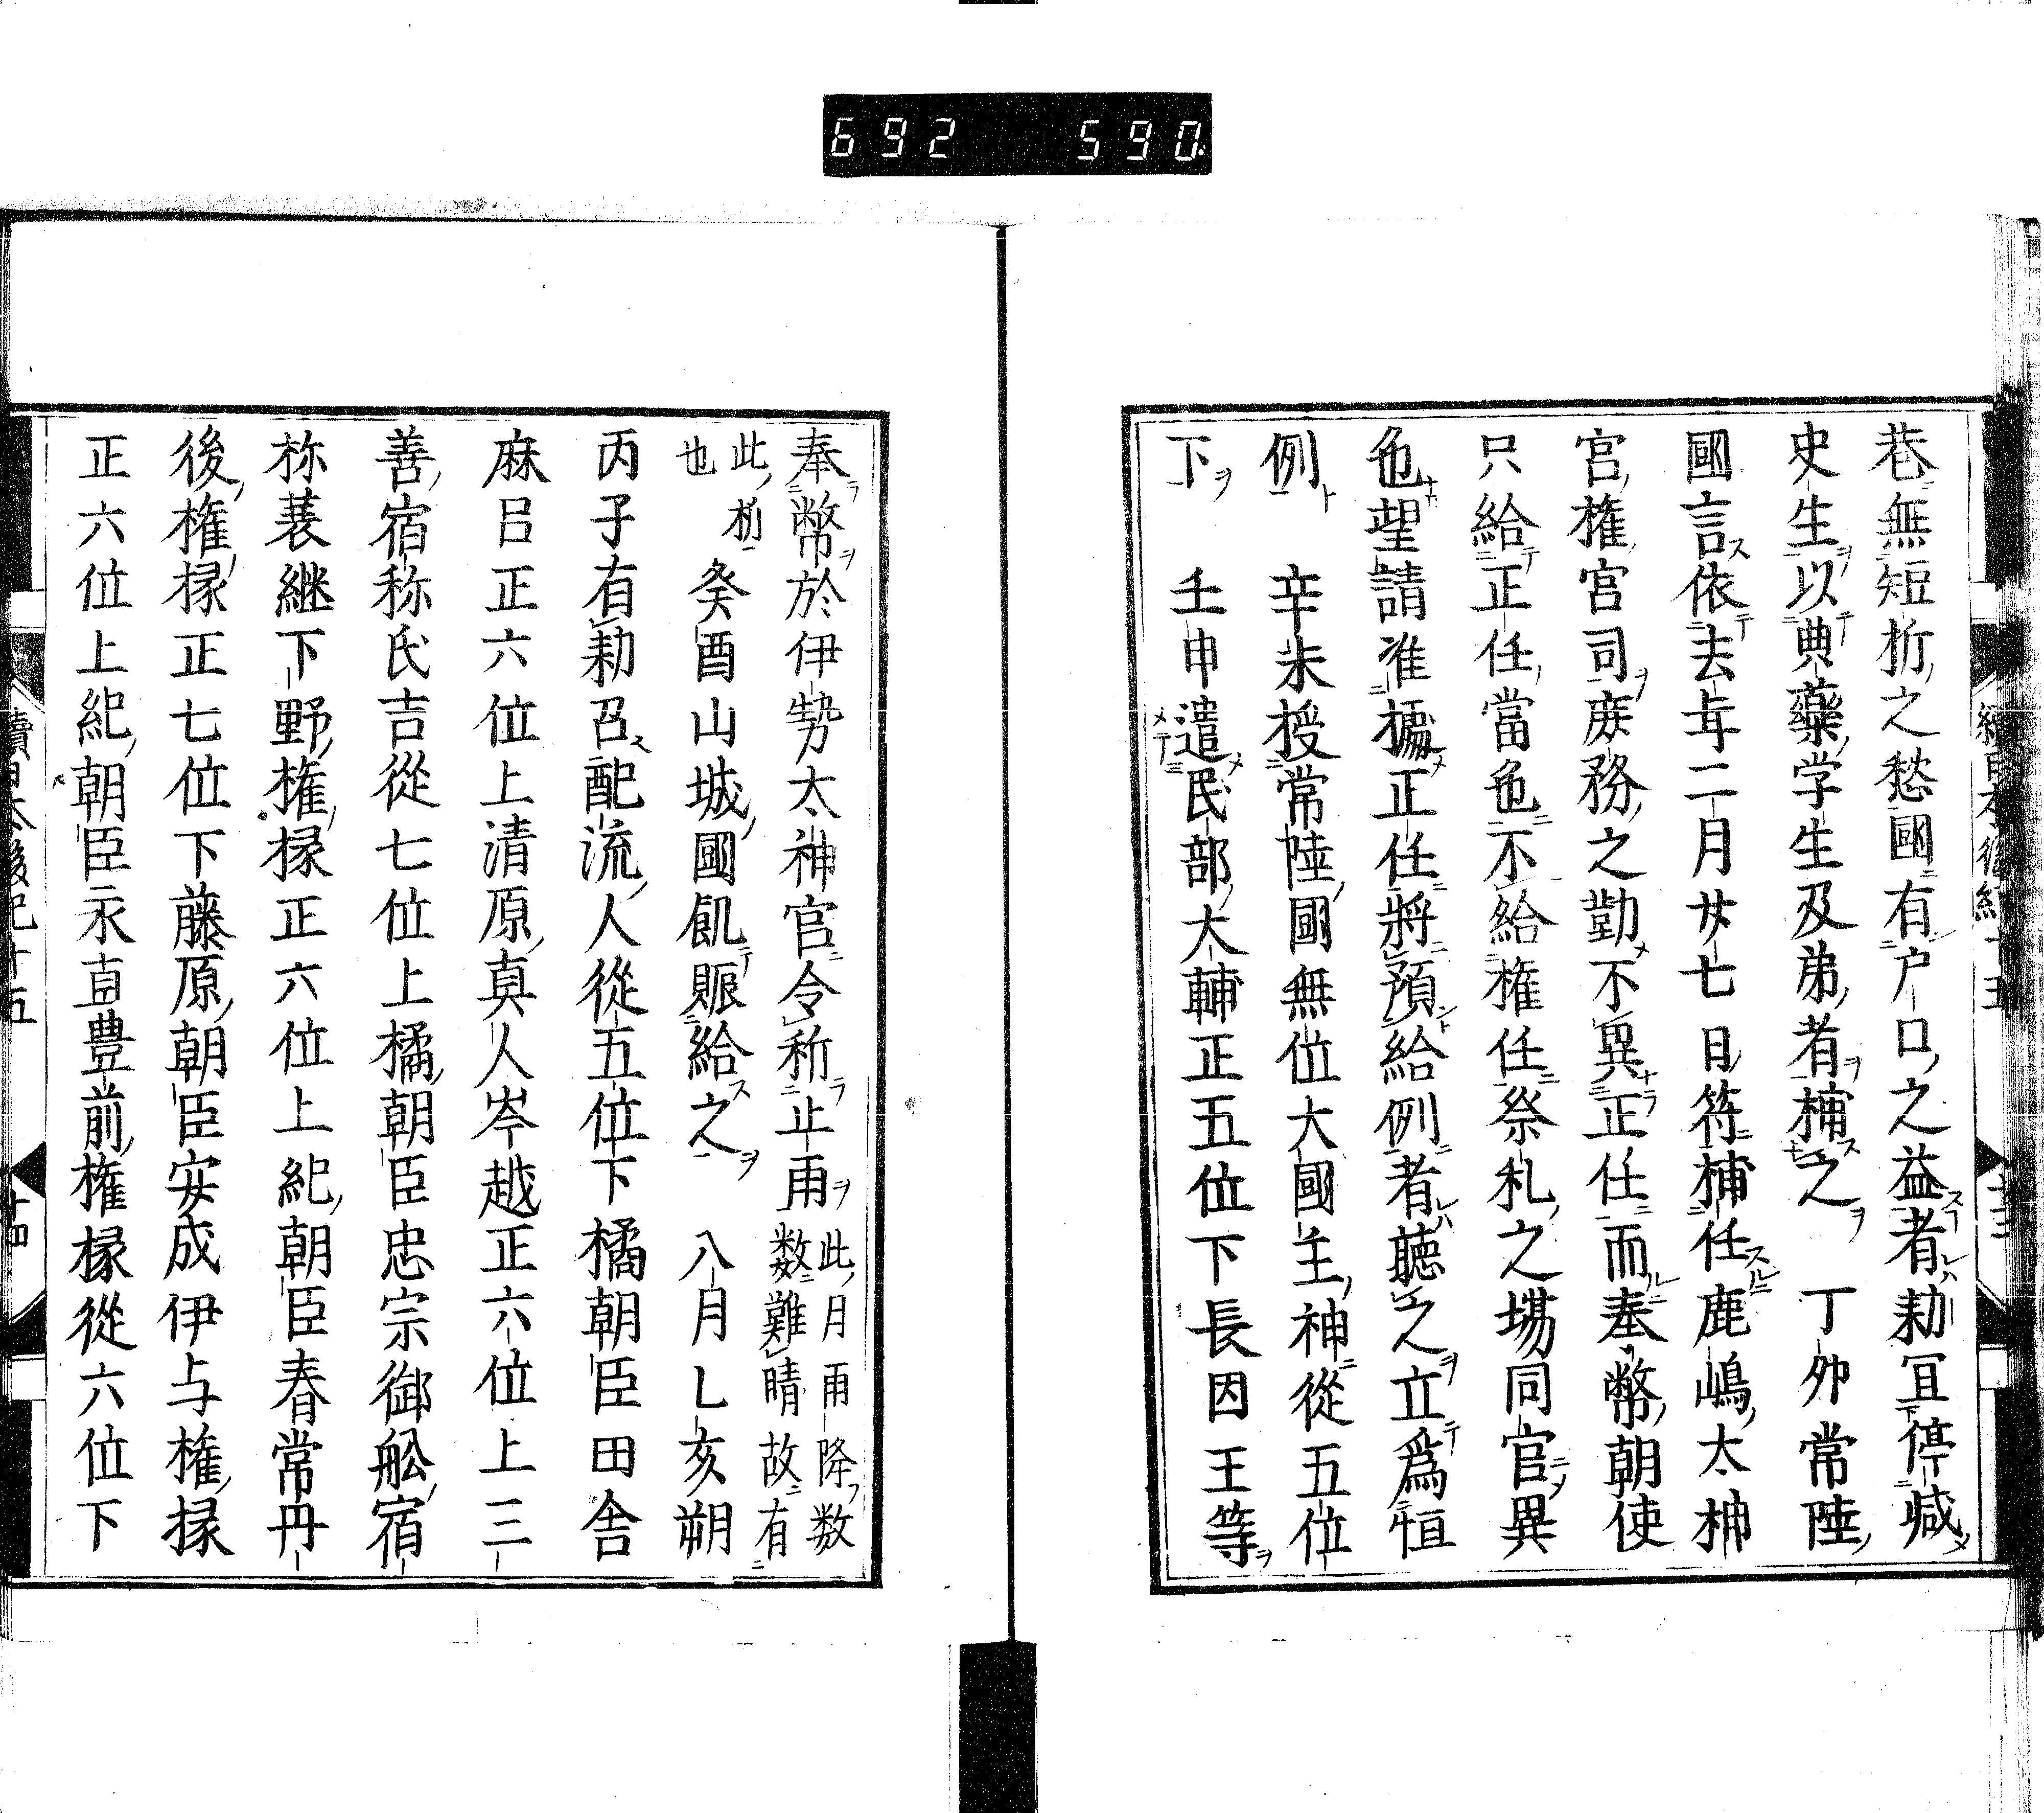 692 590
巷無短折之愁國有户口之益者勅冝停减
史生以典藥学生及弟者補之　丁夘常陸
國言依去年二月廿七日符補任鹿嶋太神
宮權宮司庶務之勤不異正任而奉幣朝使
只給正任當色不給権任祭礼之場同官異
色望請准據正任將預給例者聽之立爲恒
例　辛未授常陸國無位大國主神從五位
下　壬申遣民部大輔正五位下長因王等
奉幣於伊勢太神官令祈止雨
此月雨降数
数難晴故有
此祈
也
癸酉山城國飢賑給之　八月乚亥朔
丙子有勅召配流人從五位下橘朝臣田舎
麻呂正六位上清原真人岑越正六位上三
善宿祢氏吉從七位上橘朝臣忠宗御舩宿
祢蓑継下野権掾正六位上紀朝臣春常丹
後権掾正七位下藤原朝臣安成伊与権掾
正六位上紀朝臣永直豊前権掾從六位下
續日本後紀十五
十四